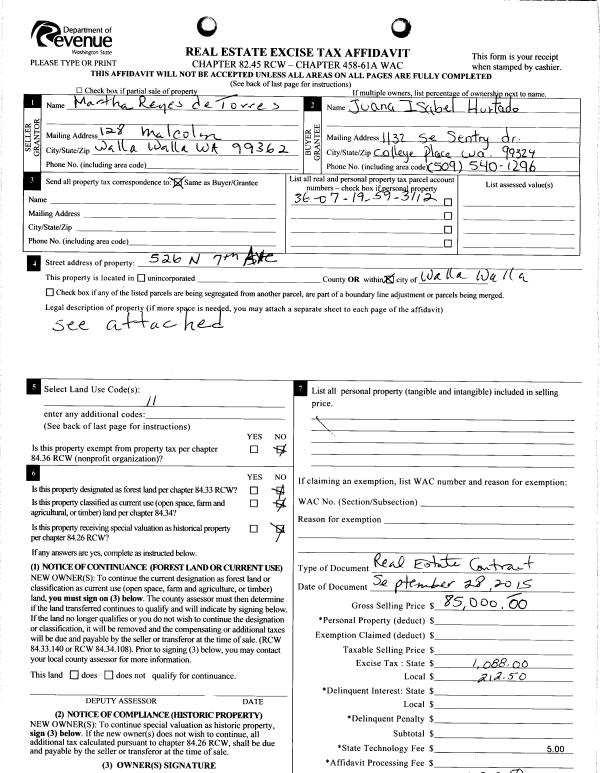 Department of
Revenue
Washington State
PLEASE TYPE OR PRINT
REAL ESTATE EXCISE TAX AFFIDAVIT
CHAPTER 82.45 RCW – CHAPTER 458-61A WAC
This form is your receipt
when stamped by cashier.
THIS AFFIDAVIT WILL NOT BE ACCEPTED UNLESS ALL AREAS ON ALL PAGES ARE FULLY COMPLETED
(See back of last page for instructions)
☐ Check box if partial sale of property
If multiple owners, list percentage of ownership next to name.
1 Name Martha Reyes de Torres
SELLER GRANTOR
Mailing Address 128 Malcolm
City/State/Zip Walla Walla WA 99362
Phone No. (including area code)
2 Name Juana Isabel Hurtado
BUYER GRANTEE
Mailing Address 1132 Se Sentry dr.
City/State/Zip College Place Wa. 99324
Phone No. (including area code) (509) 540-1296
3 Send all property tax correspondence to: ☒ Same as Buyer/Grantee
Name
Mailing Address
City/State/Zip
Phone No. (including area code)
List all real and personal property tax parcel account
numbers – check box if personal property
36-07-19-59-3112 ☐
☐
☐
☐
List assessed value(s)
4 Street address of property: 526 N 7th Ave
This property is located in ☐ unincorporated County OR within ☒ city of Walla Walla
☐ Check box if any of the listed parcels are being segregated from another parcel, are part of a boundary line adjustment or parcels being merged.
Legal description of property (if more space is needed, you may attach a separate sheet to each page of the affidavit)
see attached
5 Select Land Use Code(s):
11
enter any additional codes:
(See back of last page for instructions)
YES NO
Is this property exempt from property tax per chapter
84.36 RCW (nonprofit organization)? ☐ ☒
6 YES NO
Is this property designated as forest land per chapter 84.33 RCW? ☐ ☒
Is this property classified as current use (open space, farm and
agricultural, or timber) land per chapter 84.34? ☐ ☒
Is this property receiving special valuation as historical property
per chapter 84.26 RCW? ☐ ☒
If any answers are yes, complete as instructed below.
(1) NOTICE OF CONTINUANCE (FOREST LAND OR CURRENT USE)
NEW OWNER(S): To continue the current designation as forest land or
classification as current use (open space, farm and agriculture, or timber)
land, you must sign on (3) below. The county assessor must then determine
if the land transferred continues to qualify and will indicate by signing below.
If the land no longer qualifies or you do not wish to continue the designation
or classification, it will be removed and the compensating or additional taxes
will be due and payable by the seller or transferor at the time of sale. (RCW
84.33.140 or RCW 84.34.108). Prior to signing (3) below, you may contact
your local county assessor for more information.
This land ☐ does ☐ does not qualify for continuance.
DEPUTY ASSESSOR DATE
(2) NOTICE OF COMPLIANCE (HISTORIC PROPERTY)
NEW OWNER(S): To continue special valuation as historic property,
sign (3) below. If the new owner(s) does not wish to continue, all
additional tax calculated pursuant to chapter 84.26 RCW, shall be due
and payable by the seller or transferor at the time of sale.
(3) OWNER(S) SIGNATURE
7 List all personal property (tangible and intangible) included in selling
price.
If claiming an exemption, list WAC number and reason for exemption:
WAC No. (Section/Subsection)
Reason for exemption
Type of Document Real Estate Contract
Date of Document September 28, 2015
Gross Selling Price $ 85,000.00
*Personal Property (deduct) $
Exemption Claimed (deduct) $
Taxable Selling Price $
Excise Tax : State $ 1,088.00
Local $ 212.50
*Delinquent Interest: State $
Local $
*Delinquent Penalty $
Subtotal $
*State Technology Fee $ 5.00
*Affidavit Processing Fee $